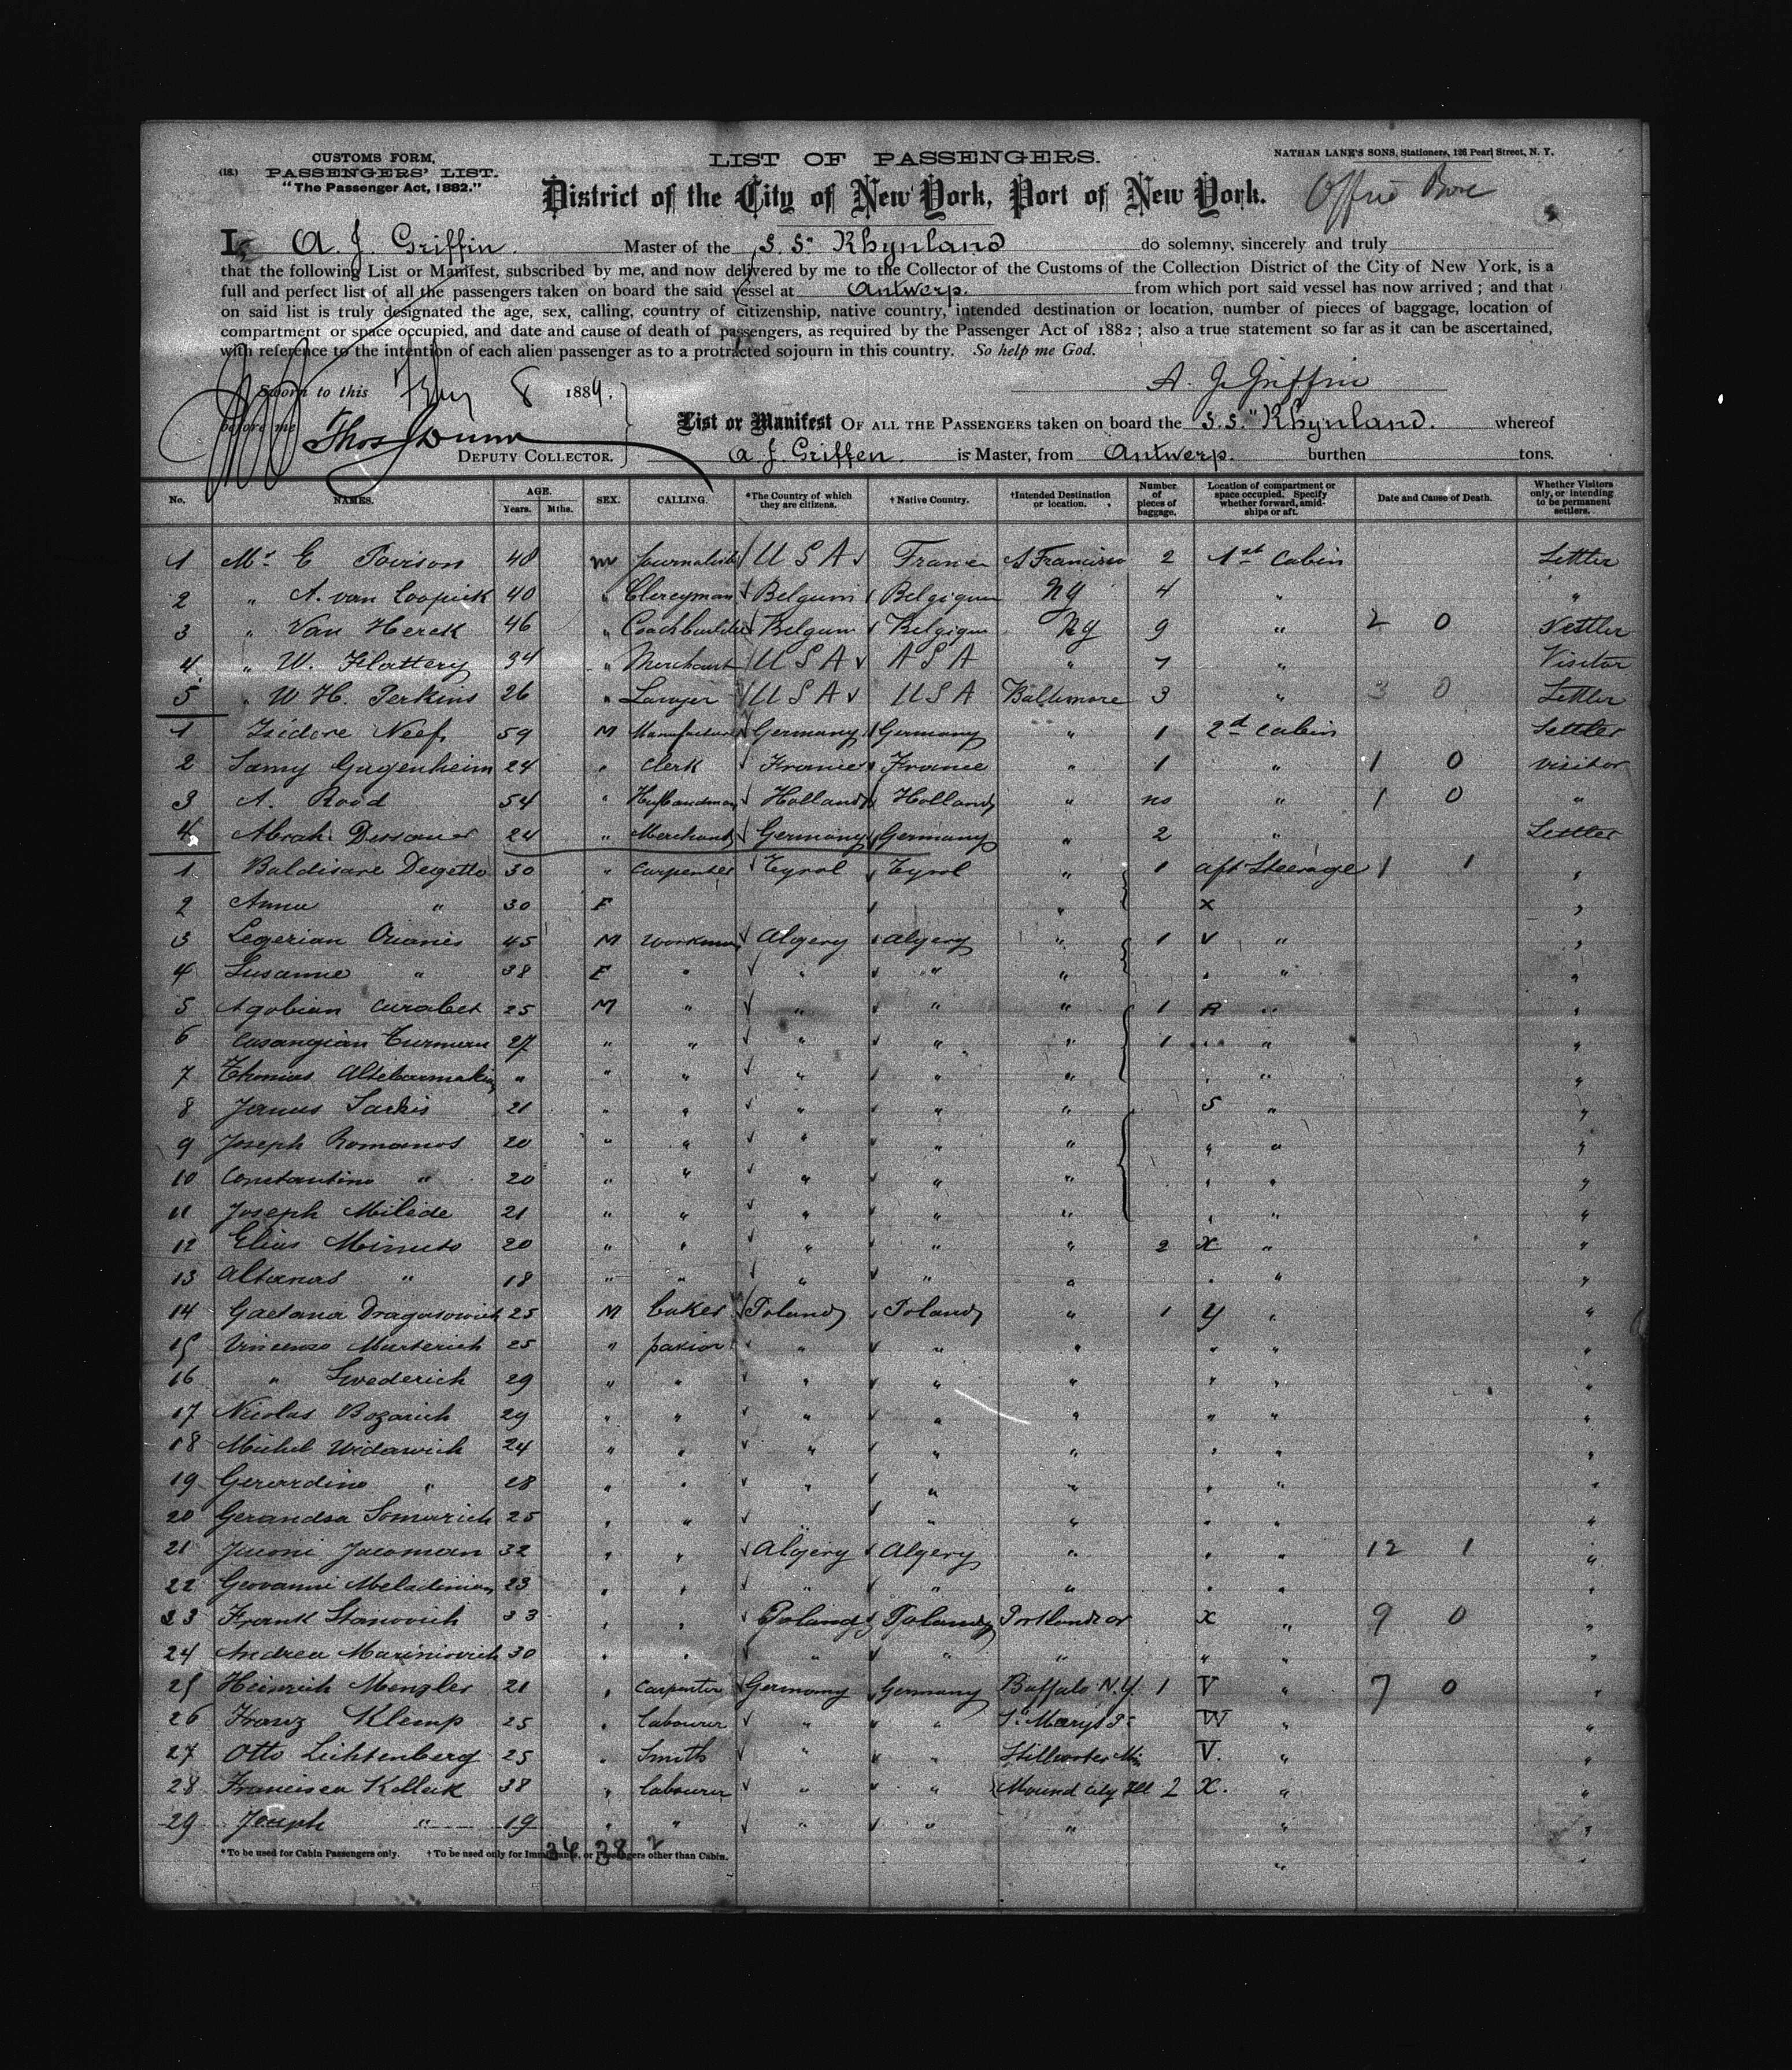 CUSTOMS FORM,
(18.) PASSENGERS' LIST.
"The Passenger Act, 1882."
LIST OF PASSENGERS.
NATHAN LANE'S SONS, Stationers, 126 Pearl Street, N. Y.
District of the City of New York, Port of New York.
I, A. J. Griffin Master of the S. S. " Rhynland do solemny, sincerely and truly
that the following List or Manifest, subscribed by me, and now delivered by me to the Collector of the Customs of the Collection District of the City of New York, is a
full and perfect list of all the passengers taken on board the said vessel at Antwerp. from which port said vessel has now arrived ; and that
on said list is truly designated the age, sex, calling, country of citizenship, native country, intended destination or location, number of pieces of baggage, location of
compartment or space occupied, and date and cause of death of passengers, as required by the Passenger Act of 1882 ; also a true statement so far as it can be ascertained,
with reference to the intention of each alien passenger as to a protracted sojourn in this country. So help me God.
Sworn to this Feby 8 1889.
A. J. Griffin
before me Thos J Dunn
DEPUTY COLLECTOR.
List or Manifest OF ALL THE PASSENGERS taken on board the S.S. " Rhynland. whereof
A. J. Griffen. is Master, from Antwerp. burthen tons.
No. NAMES. AGE. Years. Mths. SEX. CALLING. *The Country of which they are citizens. †Native Country. †Intended Destination or location. Number of pieces of baggage. Location of compartment or space occupied. Specify whether forward, amidships or aft. Date and Cause of Death. Whether Visitors only, or intending to be permanent settlers.
1 Mr. E 40 m Journalist U S A France S Francisco 2 1st Cabin Settler
2 " A. van 40 " Clereyman Belgium Belgique NY 4 " "
3 " Van Herck 46 " Coachbuilder Belgum Belgique NY 9 " 2 0 Settler
4 " W. Flattery 34 " Merchant U S A A S A " 7 " Visitor
5 " W H. Perkins 26 " Lawyer U S A U S A Baltimore 3 " 3 0 Settler
1 Isidore Neef 59 M Manufacturer Germany Germany " 1 2d Cabin Settler
2 Samy Gugenheim 24 " Clerk France France " 1 " 1 0 visitor
3 A. Rood 54 " Husbandman Holland Holland " no " 1 0 "
4 Abrah. Dessauer 24 " Merchant Germany Germany " 2 " Settler
1 Baldisare Degetto 30 " carpenter Tyrol Tyrol " 1 aft Steerage 1 1 "
2 Anna " 30 F " X "
3 Legerian Ouanis 45 M workman Algery Algery " 1 V " "
4 Susanne " 38 F " " " " " " "
5 Agobian curabet 25 M " " " " 1 R " "
6 Casangian Turman 27 " " " " " 1 " " "
7 Thomas " " " " " " " " "
8 Janus Sarkis 21 " " " " " S " "
9 Joseph Romanos 20 " " " " " " " "
10 Constantino " 20 " " " " " " " "
11 Joseph Milede 21 " " " " " " " "
12 Elias Minuto 20 " " " " " 2 X " "
13 Altanas " 18 " " " " " " " "
14 Gaetana Dragosowich 25 M baker Poland Poland " 1 Y " "
15 Vincenzo Marterich 25 " " " " " " "
16 " Swederich 29 " " " " " " " "
17 Nicolas Bozarich 29 " " " " " " " "
18 Michel Widawich 24 " " " " " " " "
19 Gerardino " 28 " " " " " " " "
20 Gerandsa Somarich 25 " " " " " " "
21 Jacoman 32 " " Algery Algery " " " 12 1 "
22 Geovanni Meladinian 23 " " " " " " " "
23 Frank Stanovich 33 " " Poland Poland Portland or X " 9 0 "
24 Andrea Mariniovich 30 " " " " " " " "
25 Heinrich Mengler 21 " Carpenter Germany Germany Buffalo N.Y. 1 V " 7 0 "
26 Franz Klemp 25 " labourer " " St Marys W " "
27 Otto Lichtenberg 25 " Smith " " Stillwater Min V. " "
28 Francisca Kolleck 38 " labourer " " Mound City Ill 2 X. " "
29 Joseph " 19 " " " " " " "
*To be used for Cabin Passengers only. †To be used only for Immigrants, or Passengers other than Cabin.
36 38 2